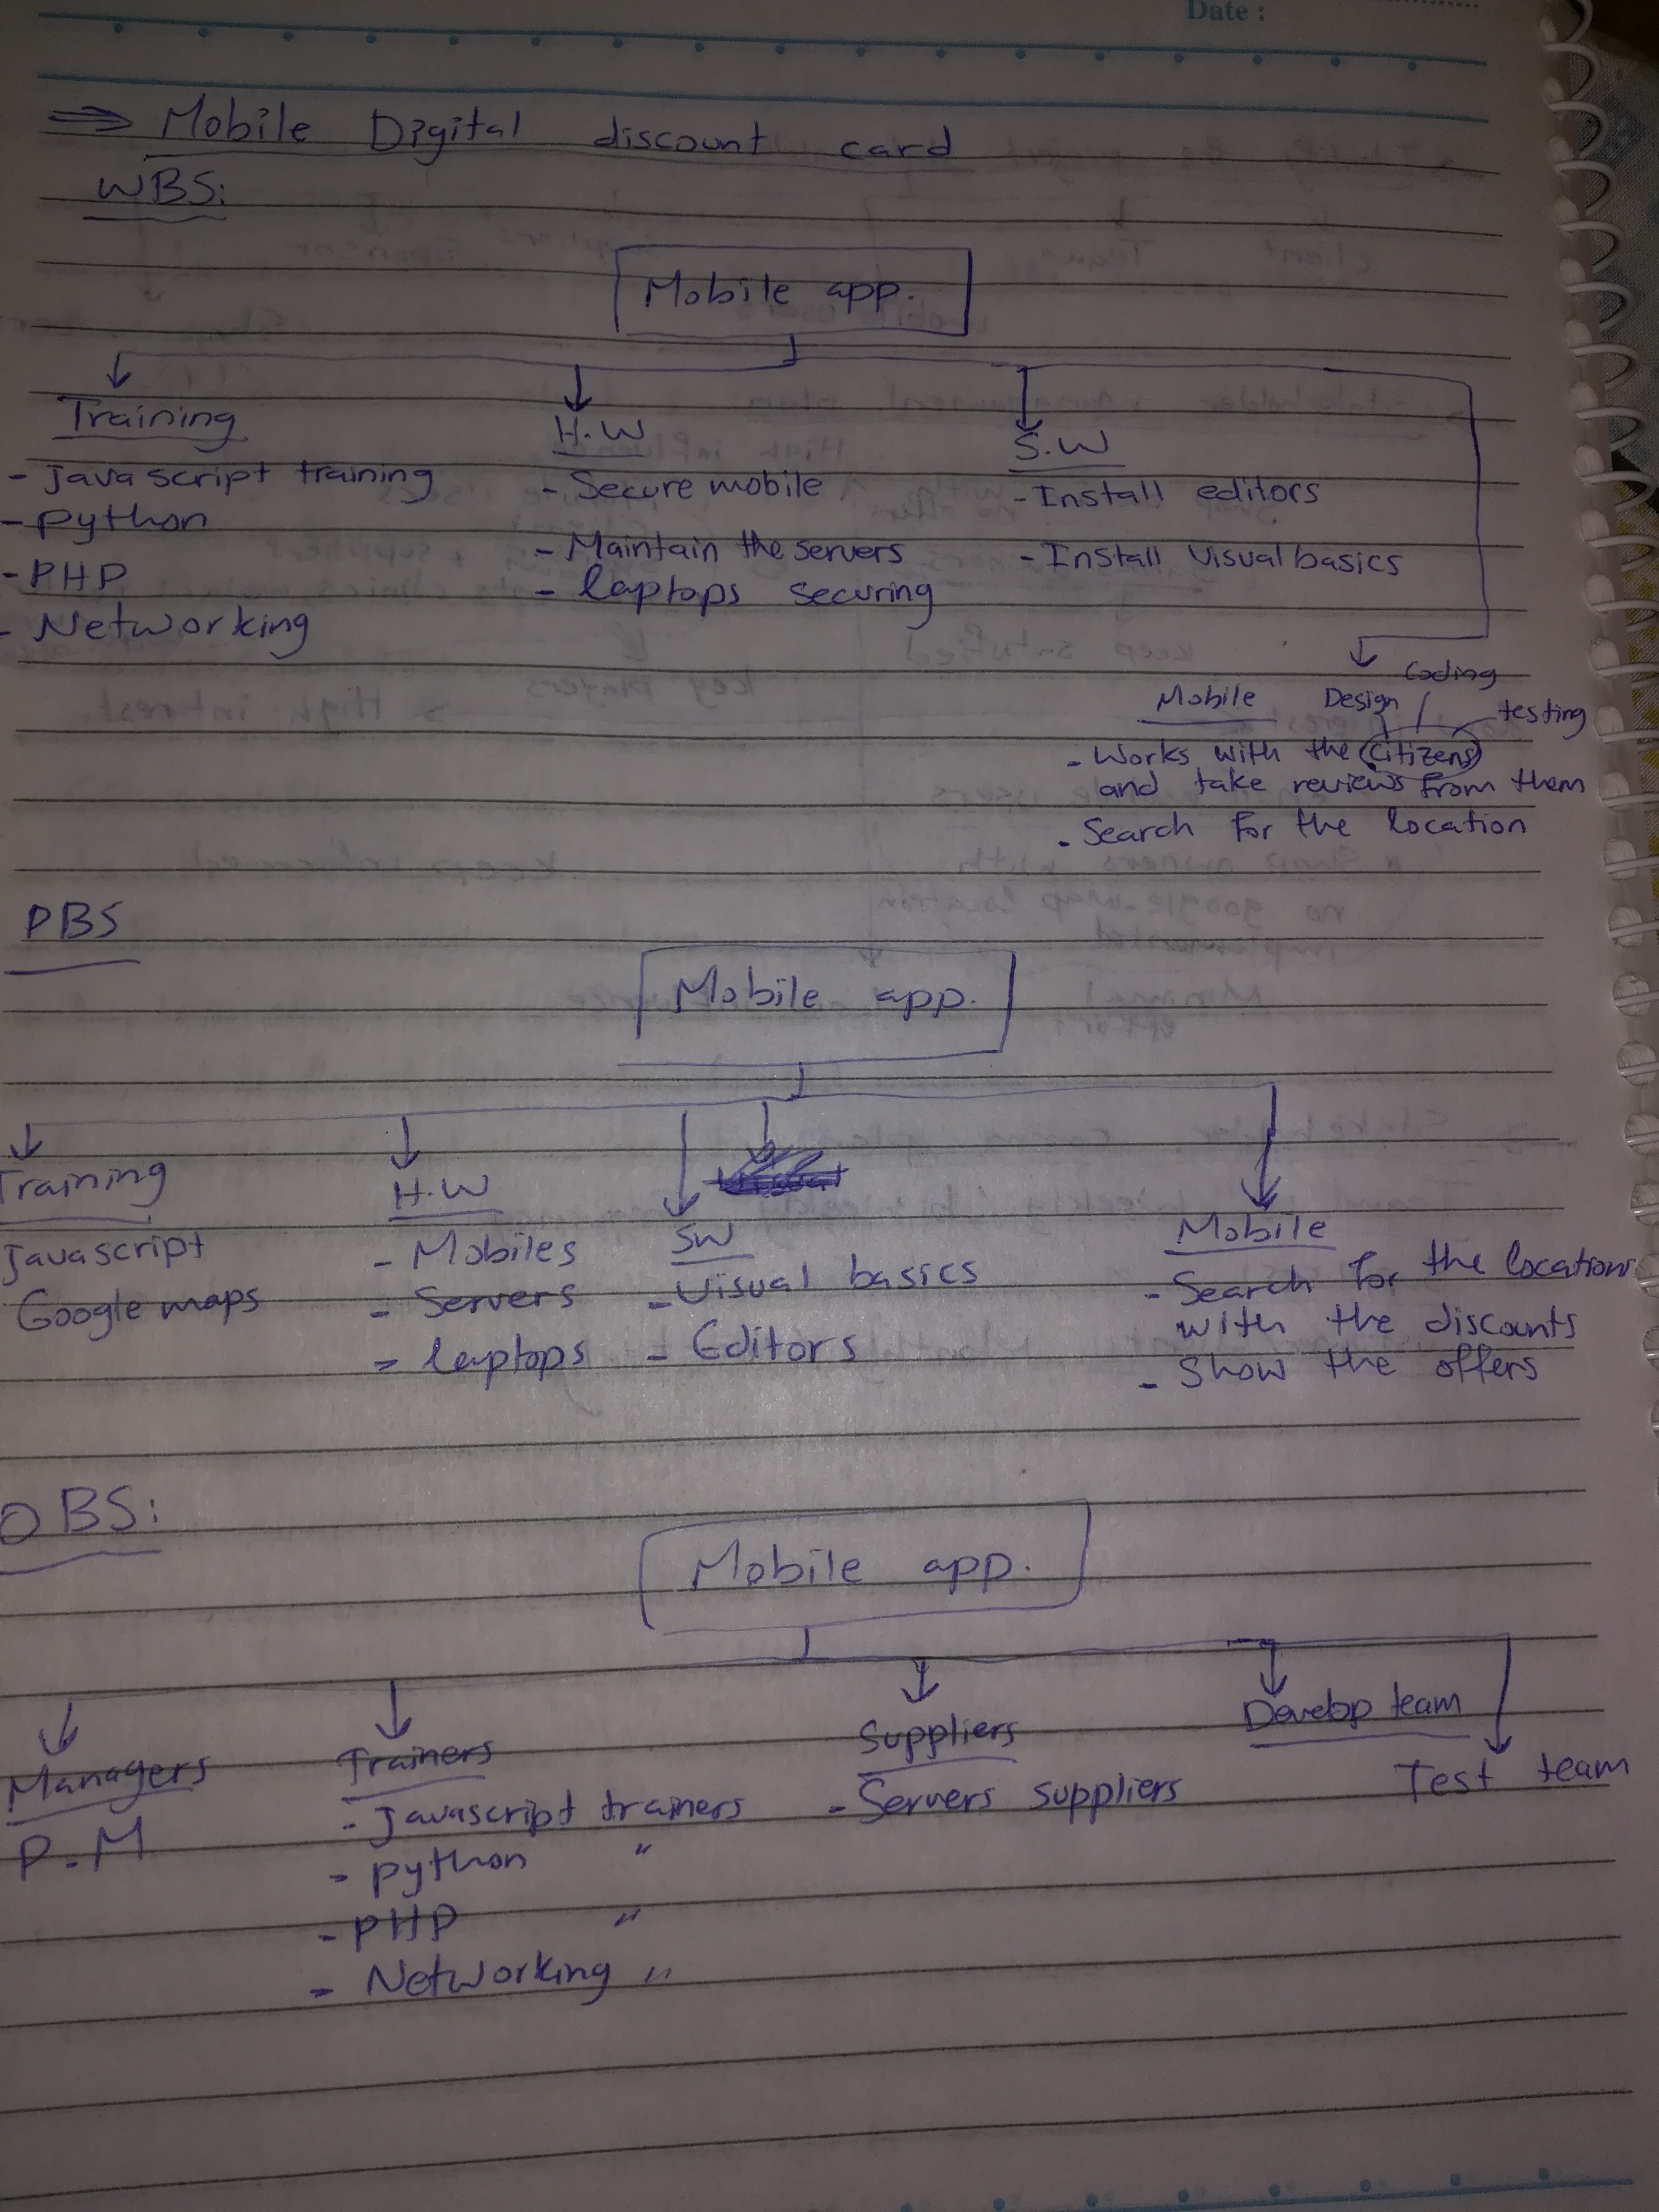 Date :
⇒ Mobile Digital discount card
WBS:
Mobile app.
Training
- Java script training
- python
- PHP
- Networking
H.W
- Secure mobile
- Maintain the servers
- laptops securing
S.W
- Install editors
- Install Visual basics
Mobile
Design
Coding
testing
- Works with the citizens
and take reviews from them
- Search for the location
PBS
Mobile app.
Training
Javascript
Google maps
H.W
- Mobiles
- Servers
- laptops
SW
- Visual basics
- Editors
Mobile
- Search for the locations
with the discounts
- Show the offers
OBS:
Mobile app.
Managers
P.M
Trainers
- Javascript trainers
- python "
- PHP "
- Networking "
Suppliers
- Servers suppliers
Develop team
Test team